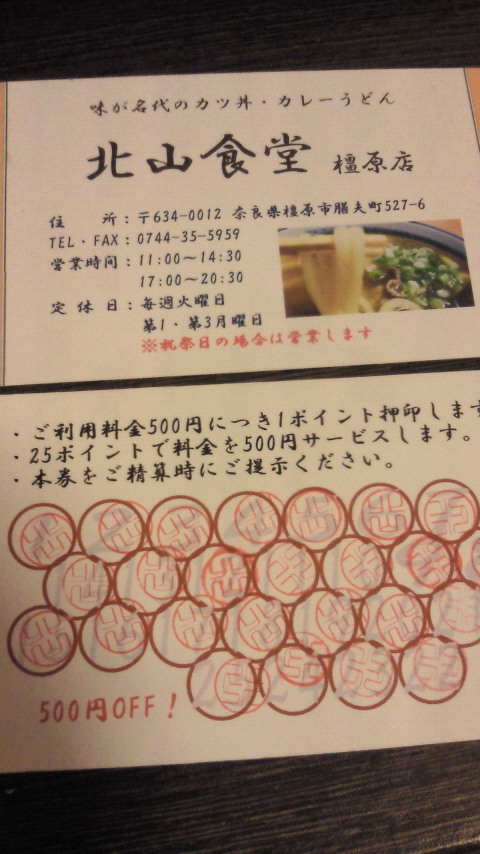 味が名代のカツ丼・カレーうどん
北山食堂 橿原店
住 所：〒634-0012 奈良県橿原市膳夫町527-6
TEL・FAX：0744-35-5959
営業時間：11:00～14:30
17:00～20:30
定休日：毎週火曜日
第1・第3月曜日
※祝祭日の場合は営業します
・ご利用料金500円につき1ポイント押印します
・25ポイントで料金を500円サービスします。
・本券をご精算時にご提示ください。
500円OFF！